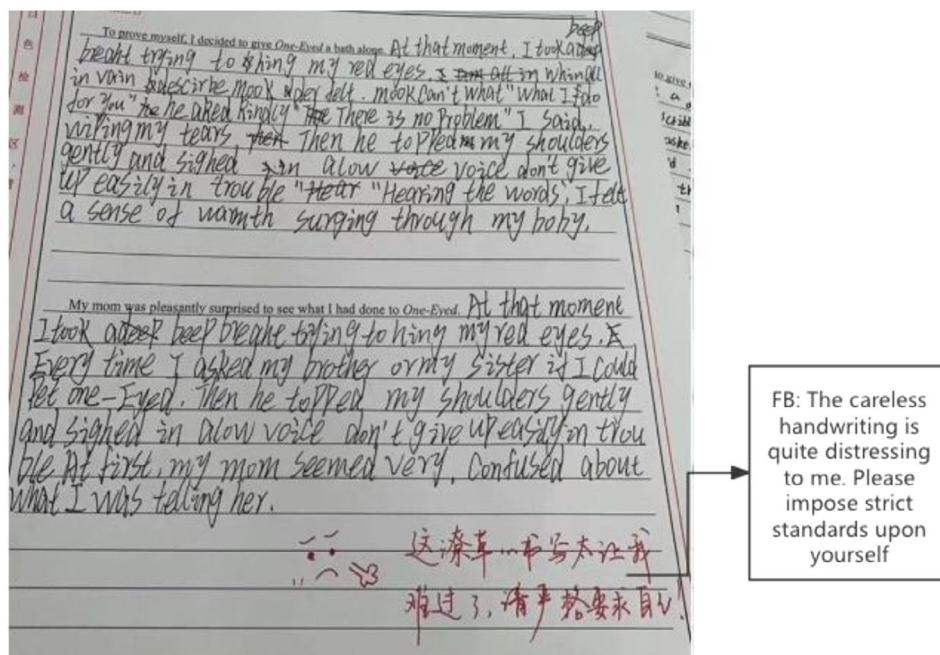 色
检
测
区
To prove myself, I decided to give One-Eyed a bath alone. At that moment, I took a beep
breaht trying to hing my red eyes.
in vain descirbe mook felt. mook can't what "what I do
for you" he aked kindly "There is no problem" I said,
wiping my tears Then he topped my shoulders
gently and sighed in alow voice don't give
up easily in trouble " "Hearing the words", I felt
a sense of warmth surging through my boby.
My mom was pleasantly surprised to see what I had done to One-Eyed. At that moment
I took a beep breaht trying to hing my red eyes.
Every time I asked my brother or my sister if I could
pet one-Eyed. Then he topped my shoulders gently
and sighed in alow voice don't give up easily in trou
ble. At first, my mom seemed very, confused about
what I was telling her.
这潦草的书写太让我
难过了,请严格要求自己!
FB: The careless
handwriting is
quite distressing
to me. Please
impose strict
standards upon
yourself